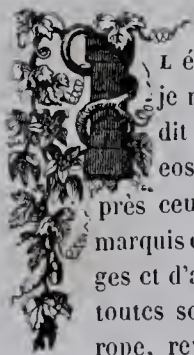 IL é
je n
dit
cos
près ceu
marquis e
ges et d'a
toutes so
rope, re